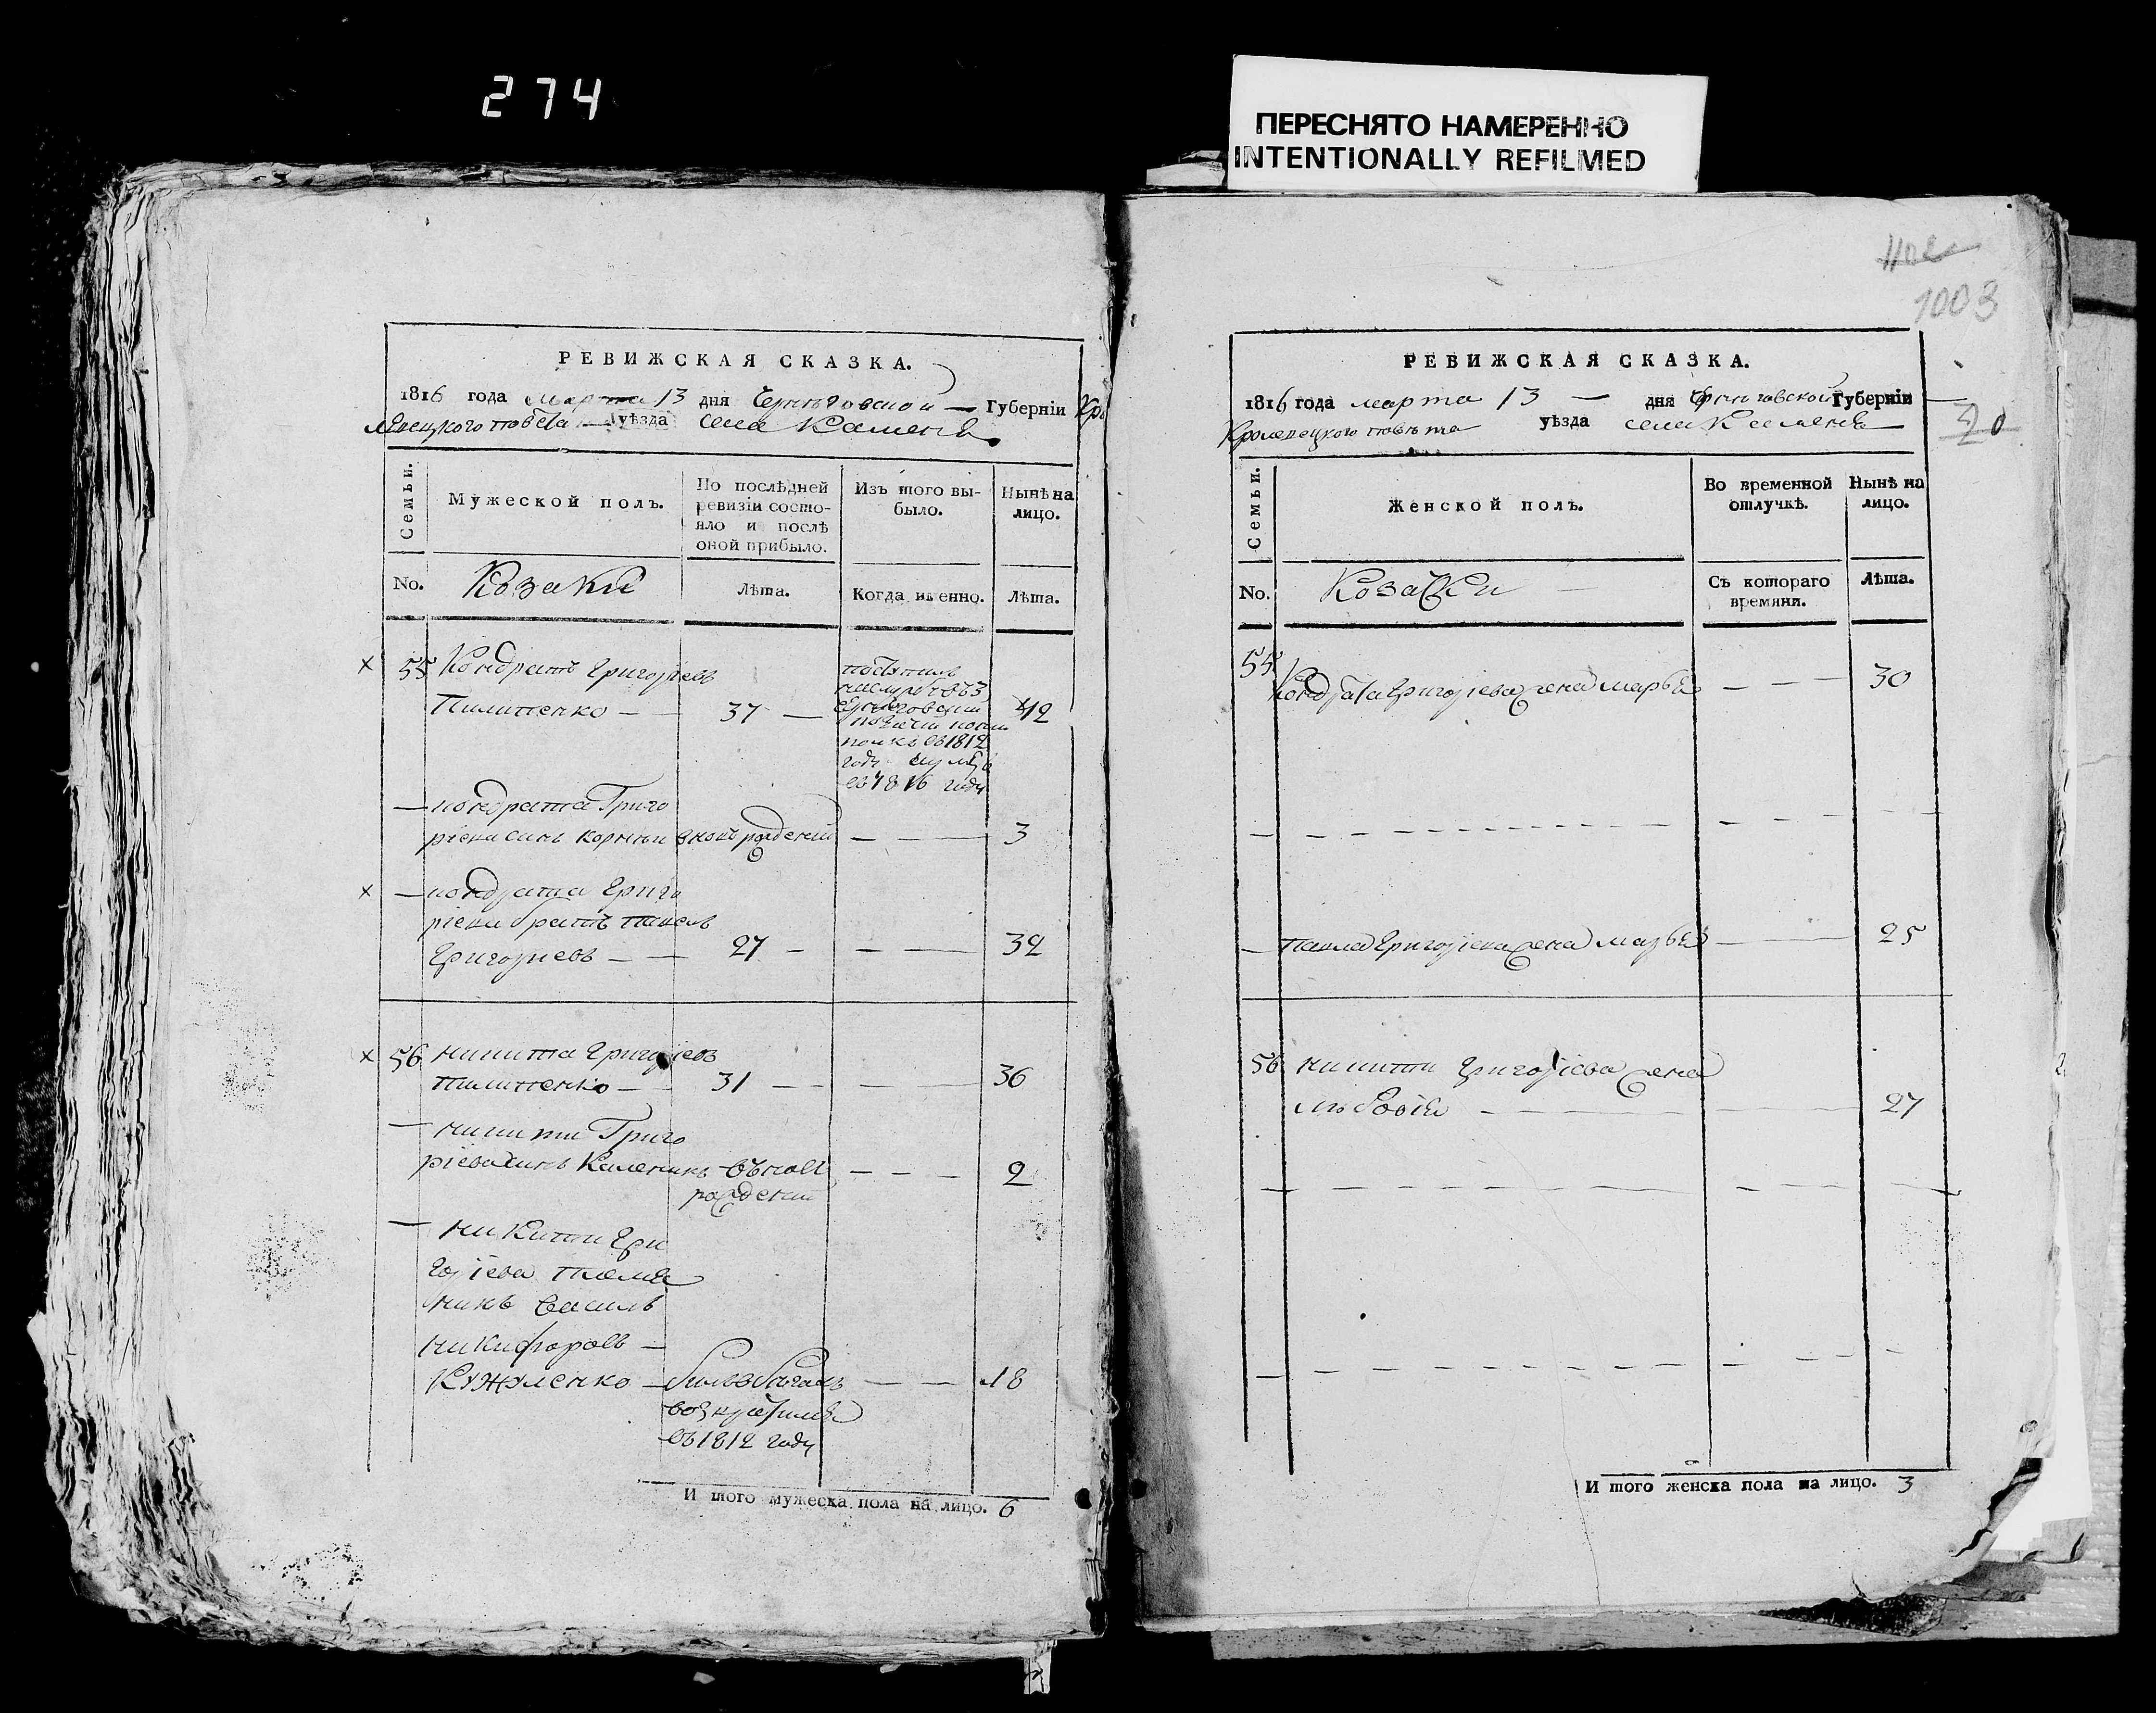 274
ПЕРЕСНЯТО НАМЕРЕННО
INTENTIONALLY REFILMED
РЕВИЖСКАЯ СКАЗКА.
1816 года марта 13 дня Черниговской Губерніи Кро
левецкого повета уѣзда села Каменя
Семьи.
Мужеской полъ.
По послѣдней ревизіи состо-
яло и послѣ
оной прибыло.
Изъ того вы-
было.
Нынѣ на
лицо.
No. Козаки Лѣта. Когда именно. Лѣта.
55 Кондратъ Григоріевъ
Пилипенко 37 42
въ 1812
году
въ 1816 году
кондрата Григо
ріева синъ Корнѣи вновь рожденій 3
кондрата Григо
ріева братъ Павелъ
Григоріевъ 27 32
56 никита Григоріевъ
Пилипенко 31 36
никити Григо
ріева синъ Каленикъ вновь 2
рожденій
никити Гри
горіева племя
никъ Василь
никифоровъ
Кужуленко 18
въ 1812 году
И того мужеска пола на лицо. 6
1003
РЕВИЖСКАЯ СКАЗКА.
1816 года марта 13 дня Черниговской Губерніи
Кролевецкого повѣта уѣзда села Каменя
Семьи.
Женской полъ.
Во временной
отлучкѣ.
Нынѣ на
лицо.
No. Козачки Съ котораго
времяни. Лѣта.
55 Кондрата Григоріева жена Марья 30
Павла Григоріева жена Марья 25
56 никити Григоріева жена
27
И того женска пола на лицо. 3